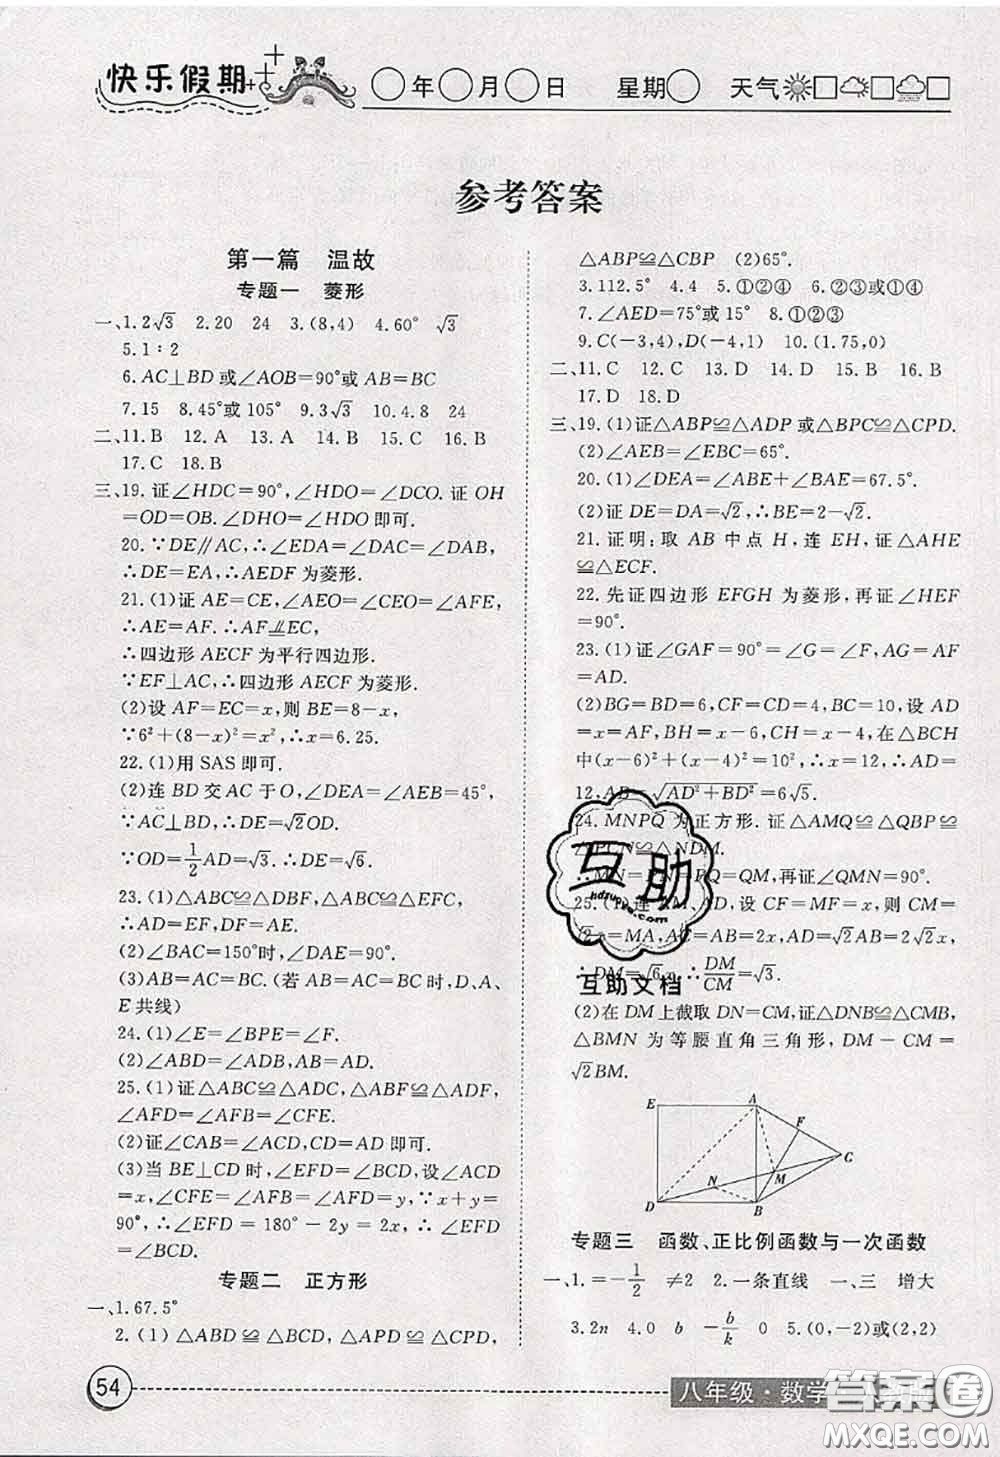 快乐假期 ○年○月○日 星期○ 天气□□□
参考答案
第一篇 温故
专题一 菱形
一、1.2√3 2.20 24 3.(8,4) 4.60° √3
5.1∶2
6.AC⊥BD或∠AOB=90°或AB=BC
7.15 8.45°或105° 9.3√3 10.4.8 24
二、11.B 12.A 13.A 14.B 15.C 16.B
17.C 18.B
三、19.证∠HDC=90°,∠HDO=∠DCO.证OH
=OD=OB.∠DHO=∠HDO即可.
20.∵DE∥AC,∴∠EDA=∠DAC=∠DAE,
∴DE=EA,∴AEDF为菱形.
21.(1)证AE=CE,∠AEO=∠CEO=∠AFE,
∴AE=AF.∴AF⫽EC,
∴四边形AECF为平行四边形.
∵EF⊥AC,∴四边形AECF为菱形.
(2)设AF=EC=x,则BE=8-x,
∵6²+(8-x)²=x²,∴x=6.25.
22.(1)用SAS即可.
(2)连BD交AC于O,∠DEA=∠AEB=45°,
∵AC⊥BD,∴DE=√2OD.
∵OD=1/2AD=√3.∴DE=√6.
23.(1)△ABC≌△DBF,△ABC≌△EFC,
∴AD=EF,DF=AE.
(2)∠BAC=150°时,∠DAE=90°.
(3)AB=AC=BC.(若AB=AC=BC时,D、A、
E共线)
24.(1)∠E=∠BPE=∠F.
(2)∠ABD=∠ADB,AB=AD.
25.(1)证△ABC≌△ADC,△ABF≌△ADF,
∠AFD=∠AFB=∠CFE.
(2)证∠CAB=∠ACD,CD=AD即可.
(3)当BE⊥CD时,∠EFD=∠BCD,设∠ACD
=x,∠CFE=∠AFD=∠AFB=y,∵x+y=
90°,∴∠EFD=180°-2y=2x,∴∠EFD
=∠BCD.
专题二 正方形
一、1.67.5°
2.(1)△ABD≌△CBD,△APD≌△CPD,
△ABP≌△CBP (2)65°.
3.112.5° 4.4 5.①②④ 6.①②③或①②④
7.∠AED=75°或15° 8.①②③
9.C(-3,4),D(-4,1) 10.(1.75,0)
二、11.C 12.C 13.D 14.D 15.A 16.B
17.D 18.D
三、19.(1)证△ABP≌△ADP或△BPC≌△CPD.
(2)∠AEB=∠EBC=65°.
20.(1)∠DEA=∠ABE+∠BAE=67.5°.
(2)证DE=DA=√2,∴BE=2-√2.
21.证明:取AB中点H,连EH,证△AHE
≌△ECF.
22.先证四边形EFGH为菱形,再证∠HEF
=90°.
23.(1)证∠GAF=90°=∠G=∠F,AG=AF
=AD.
(2)BG=BD=6,CF=CD=4,BC=10,设AD
=x=AF,BH=x-6,CH=x-4,在△BCH
中(x-6)²+(x-4)²=10²,∴x=12,∴AD=
12,AB=√AD²+BD²=6√5.
24.MNPQ为正方形.证△AMQ≌△BNM≌
△PCN≌△NDM.
∴MN=PN=PQ=QM,再证∠AMN=90°.
25.(1)连AM、AD,设CF=MF=x,则CM=
√2x=MA,AC=AB=2x,AD=√2AB=2√2x,
∴DM=√6x,∴DM/CM=√3.
(2)在DM上截取DN=CM,证△DNB≌△CMA,
△BMN为等腰直角三角形,DM-CM=
√2BM.
E A F C M N D B
专题三 函数、正比例函数与一次函数
一、1.=-1/2 ≠2 2.一条直线 一、三 增大
3.2n 4.0 b -b/k 0 5.(0,-2)或(2,2)
54
八年级·数学
互助
hdzuoye.com
互助文档
答案卷
MXQE.COM